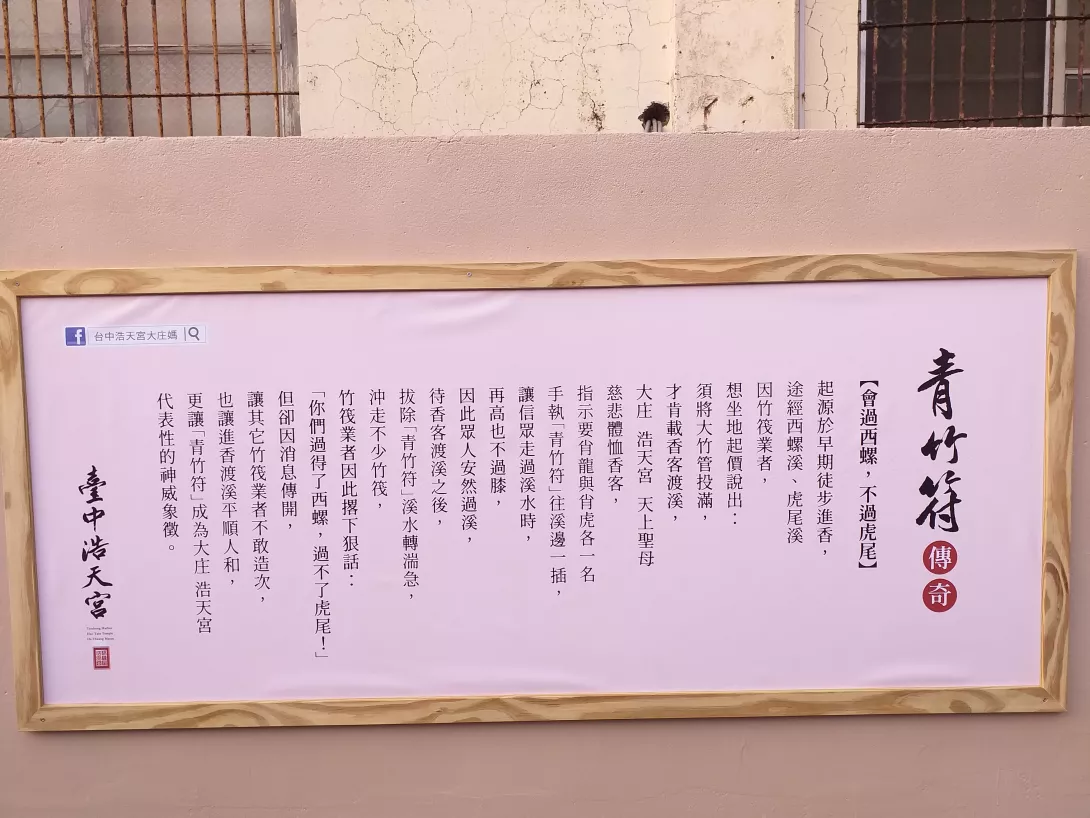 青竹符
傳奇
【會過西螺，不過虎尾】
起源於早期徒步進香，
途經西螺溪、虎尾溪
因竹筏業者，
想坐地起價說出：
須將大竹管投滿，
才肯載香客渡溪，
大庄 浩天宮 天上聖母
慈悲體恤香客，
指示要肖龍與肖虎各一名
手執「青竹符」往溪邊一插，
讓信眾走過溪水時，
再高也不過膝，
因此眾人安然過溪，
待香客渡溪之後，
拔除「青竹符」溪水轉湍急，
沖走不少竹筏，
竹筏業者因此撂下狠話：
「你們過得了西螺，過不了虎尾！」
但卻因消息傳開，
讓其它竹筏業者不敢造次，
也讓進香渡溪平順人和，
更讓「青竹符」成為大庄 浩天宮
代表性的神威象徵。
f 台中浩天宮大庄媽
臺中浩天宮